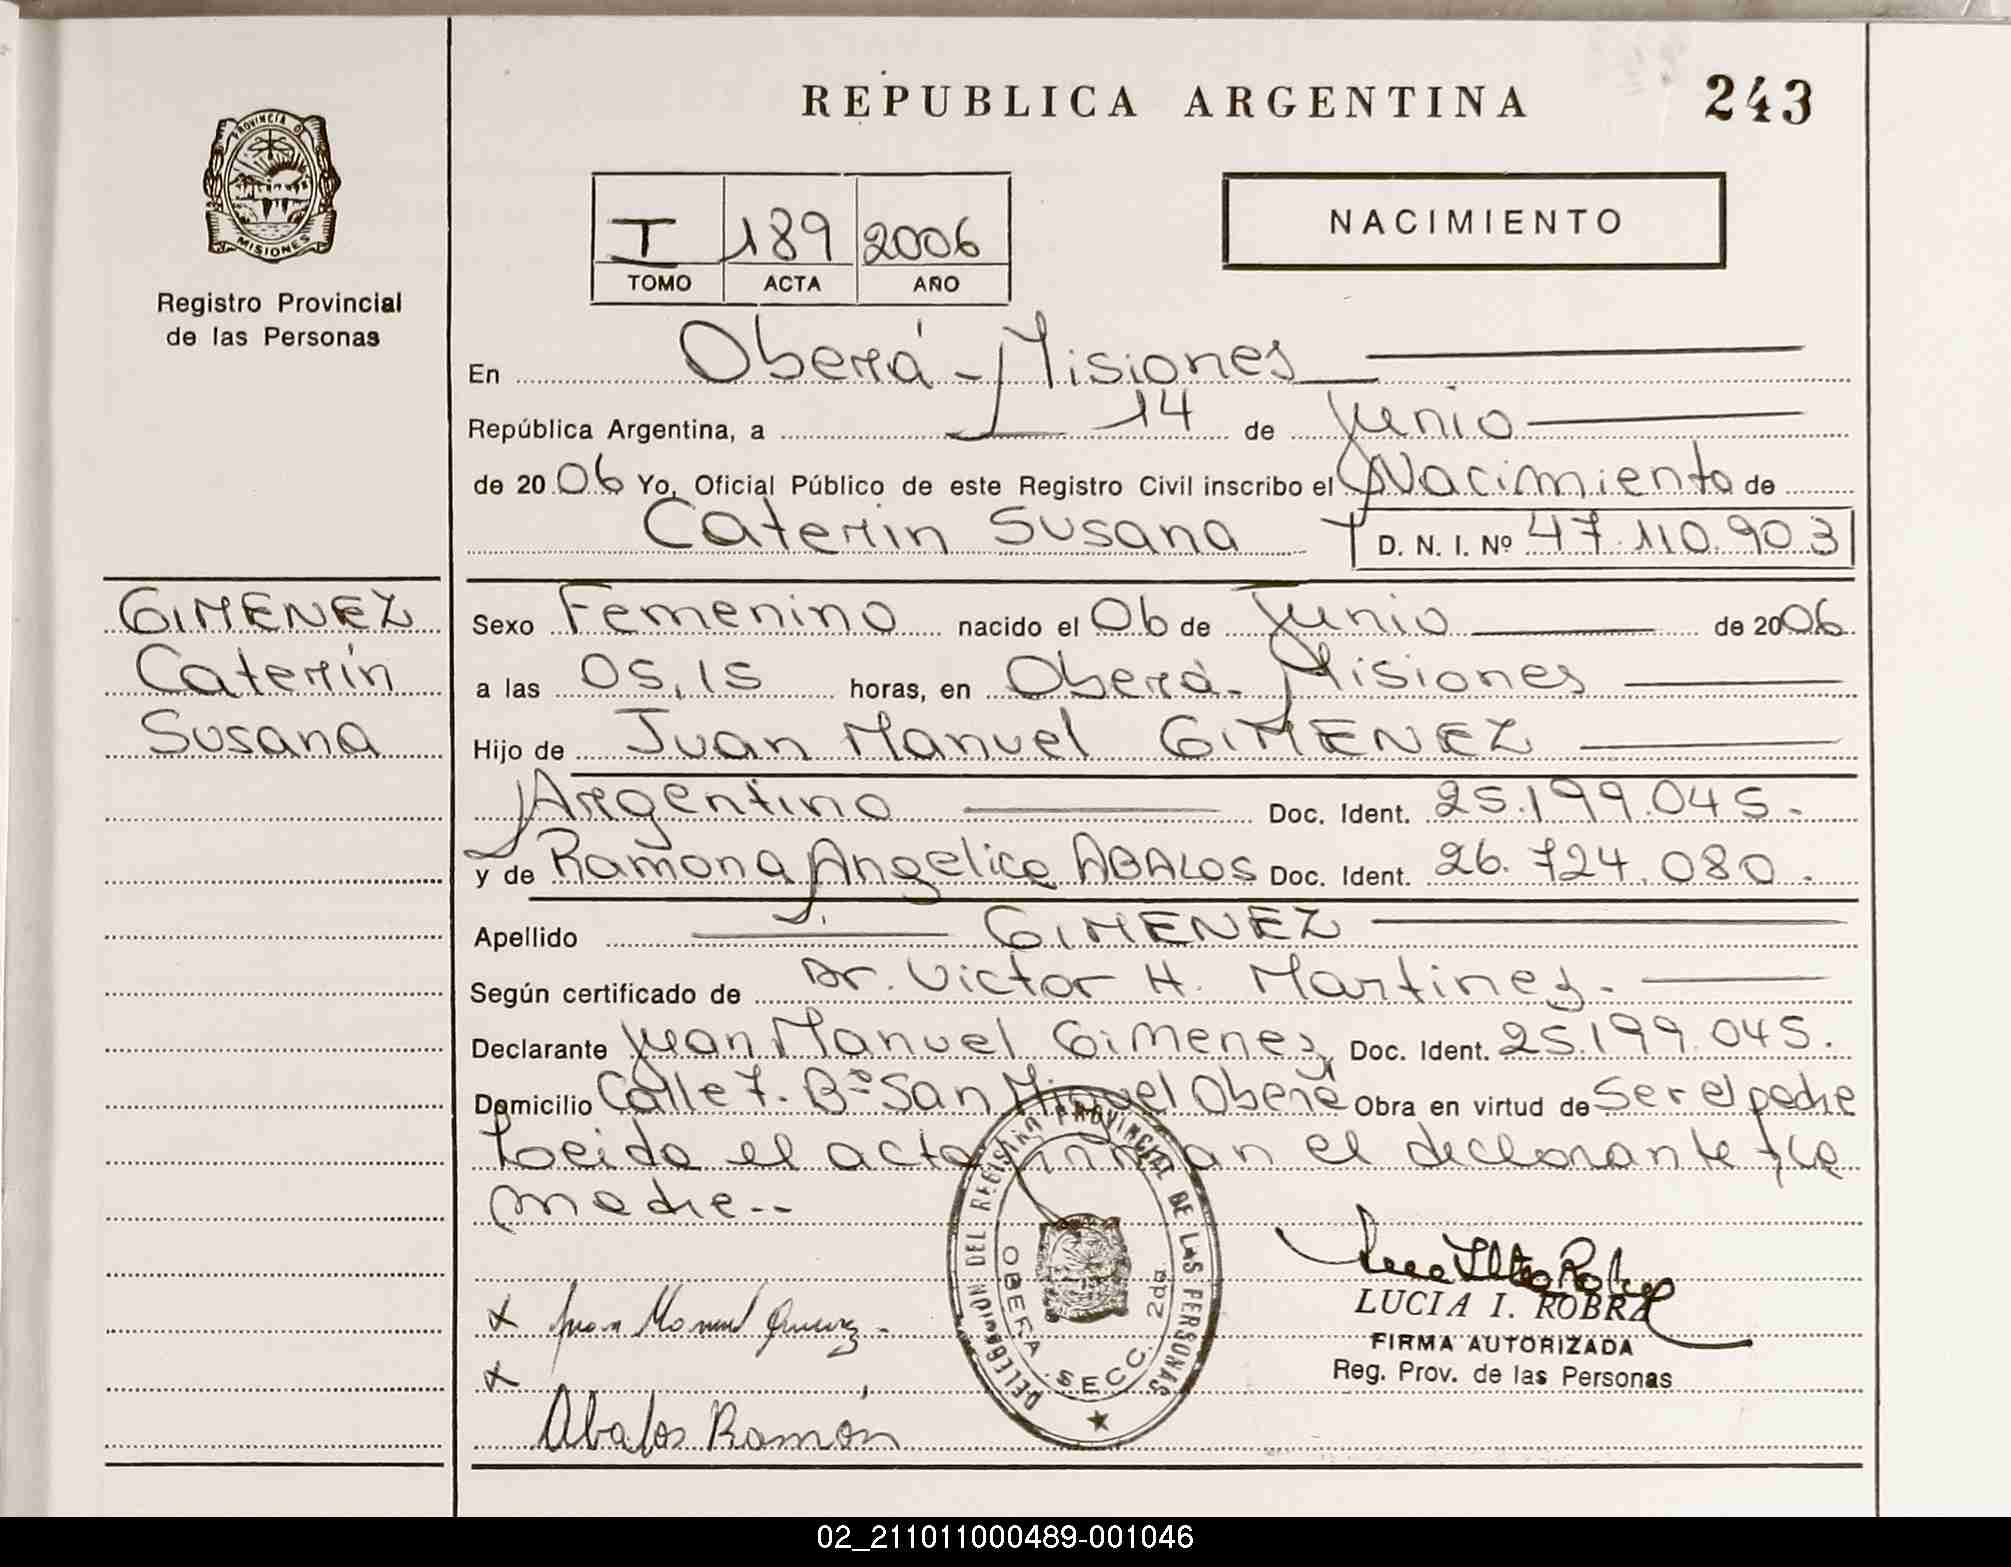 REPUBLICA ARGENTINA
243
PROVINCIA D
MISIONES
Registro Provincial
de las Personas
I 189 2006
TOMO ACTA AÑO
NACIMIENTO
En Oberá - Misiones
República Argentina, a 14 de Junio
de 2006 Yo, Oficial Público de este Registro Civil inscribo el Nacimiento de
Caterin Susana D. N. I. Nº 47.110.903
GIMENEZ
Caterin
Susana
Sexo Femenino nacido el 06 de Junio de 2006
a las 05,15 horas, en Oberá - Misiones
Hijo de Juan Manuel GIMENEZ
Argentino Doc. Ident. 25.199.045.
y de Ramona Angelica ABALOS Doc. Ident. 26.724.080.
Apellido GIMENEZ
Según certificado de Dr. Victor H. Martinez.
Declarante Juan Manuel Gimenez Doc. Ident. 25.199.045.
Domicilio Calle 7. Bº San Miguel Oberá Obra en virtud de Ser el padre
Leida el acta firman el declarante y la
madre--
DELEGACIÓN DEL REGISTRO PROVINCIAL DE LAS PERSONAS
OBERA SECC. 2da.
x Juan Manuel Gimenez -
x
Abalos Ramón
LUCIA I. ROBRA
FIRMA AUTORIZADA
Reg. Prov. de las Personas
02_211011000489-001046